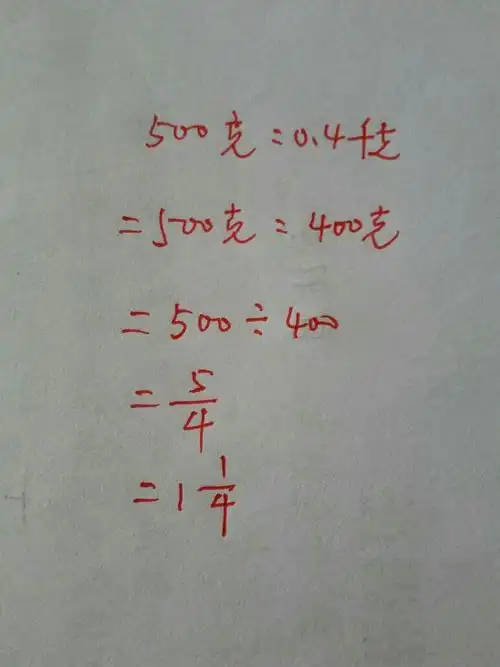 500克=0.4千克
=500克=400克
=500÷400
=5/4
=1 1/4